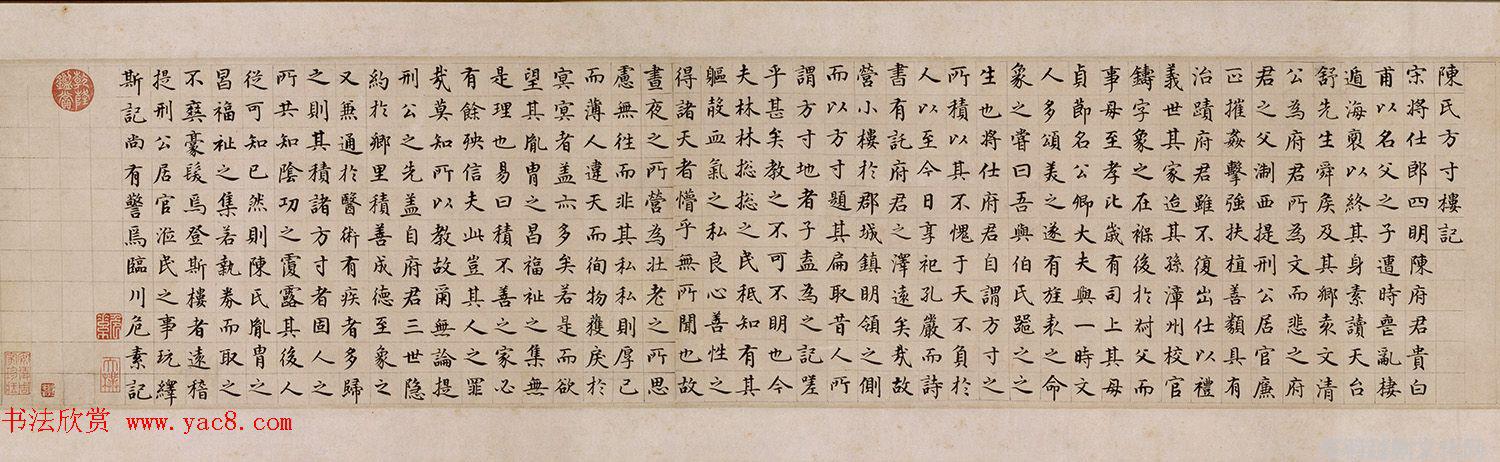 陳氏方寸樓記
宋將仕郎四明陳府君貴白
甫以名父之子遭時喪亂棲
遁海裔以終其身素讀天台
舒先生舜矦及其鄉袁文清
公為府君所為文而悲之府
君之父淛西提刑公居官廉
正摧姦擊強扶植善類具有
治蹟府君雖不復出仕以禮
義世其家迨其孫漳州校官
鑄字象之在褓後於叔父而
事母至孝比歲有司上其母
貞節名公卿大夫與一時文
人多頌美之遂有旌表之命
象之嘗曰吾與伯氏之之
生也將仕府君自謂方寸之
所積以其不愧于天不負於
人以至今日享祀孔嚴而詩
書有託府君之澤遠矣哉故
營小樓於郡城鎮明領之側
而以方寸題其扁取昔人所
謂方寸地者子盍為之記嗟
乎甚矣教之不可不明也今
夫林林揔揔之民秪知有其
軀殼血氣之私良心善性之
得諸天者懵乎無所聞也故
晝夜之所營為壯老之所思
慮無徃而非其私私則厚己
而薄人違天而徇物獲戾於
冥冥者蓋亦多矣若是而欲
望其胤胄之昌福祉之集無
是理也易曰積不善之家必
有餘殃信夫此豈其人之罪
哉莫知所以教故爾無論提
刑公之先蓋自府君三世隐
約於鄉里積善成德至象之
又兼通於醫術有疾者多歸
之則其積諸方寸者固人之
所共知陰功之露其後人
從可知已然則陳氏胤胄之
昌福祉之集若執券而取之
不爽豪髮焉登斯樓者遠稽
提刑公居官涖民之事玩繹
斯記尚有警焉臨川危素記
书法欣赏 www.yac8.com